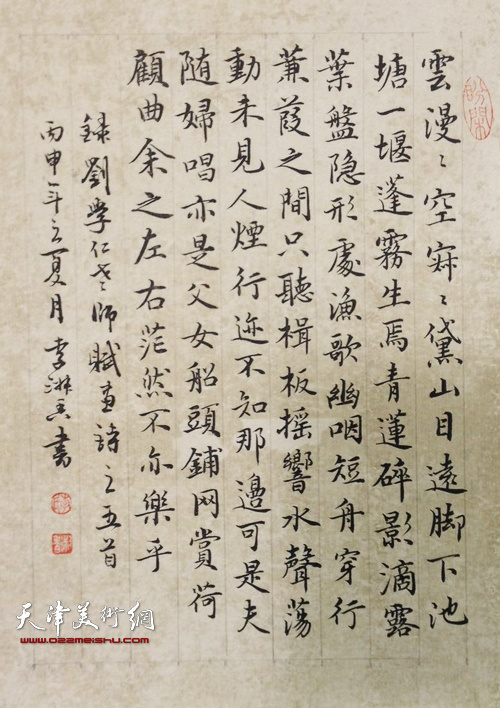 雲漫〻空寂〻黛山目遠脚下池
塘一堰蓬霧生焉青蓮碎影滴露
葉盤隐形處漁歌幽咽短舟穿行
蒹葭之間只聽楫板摇響水聲蕩
動未見人煙行迹不知那邊可是夫
随婦唱亦是父女船頭鋪网賞荷
顧曲余之左右茫然不亦樂乎
録劉學仁老師賦畫詩之五首
丙申年立夏月李淋書
天津美術網
www.022meishu.com